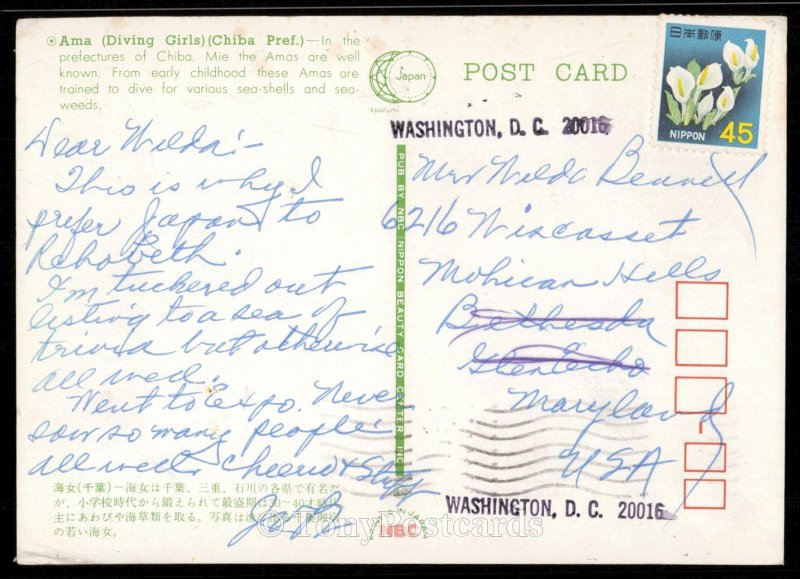 ⦿Ama (Diving Girls)(Chiba Pref.)—In the
prefectures of Chiba. Mie the Amas are well
known. From early childhood these Amas are
trained to dive for various sea-shells and sea-
weeds.
Japan
tsuzumi
POST CARD
日本郵便
NIPPON 45
WASHINGTON, D. C. 20016
Dear Wilda:-
This is why I
prefer Japan to
Rehoveth.
I'm tuckered out
listing to a sea of
trivia but otherwise
all well.
Went to Expo. Never
saw so many people.
all well. Cheerio &
PUB BY NBC (NIPPON BEAUTY CARD CENTER INC.
Mrs Wilda Bennett
6216 Wiscasset
Mohican Hills
Bethesda
Glen Echo
Maryland
USA
WASHINGTON, D. C. 20016
海女(千葉)－海女は千葉、三重、石川の各県で有名だ
が、小学校時代から鍛えられて最盛期は30～40才時代
主にあわびや海草類を取る。写真は
の若い海女。
IN JAPAN
NBC
© TonyPostcards